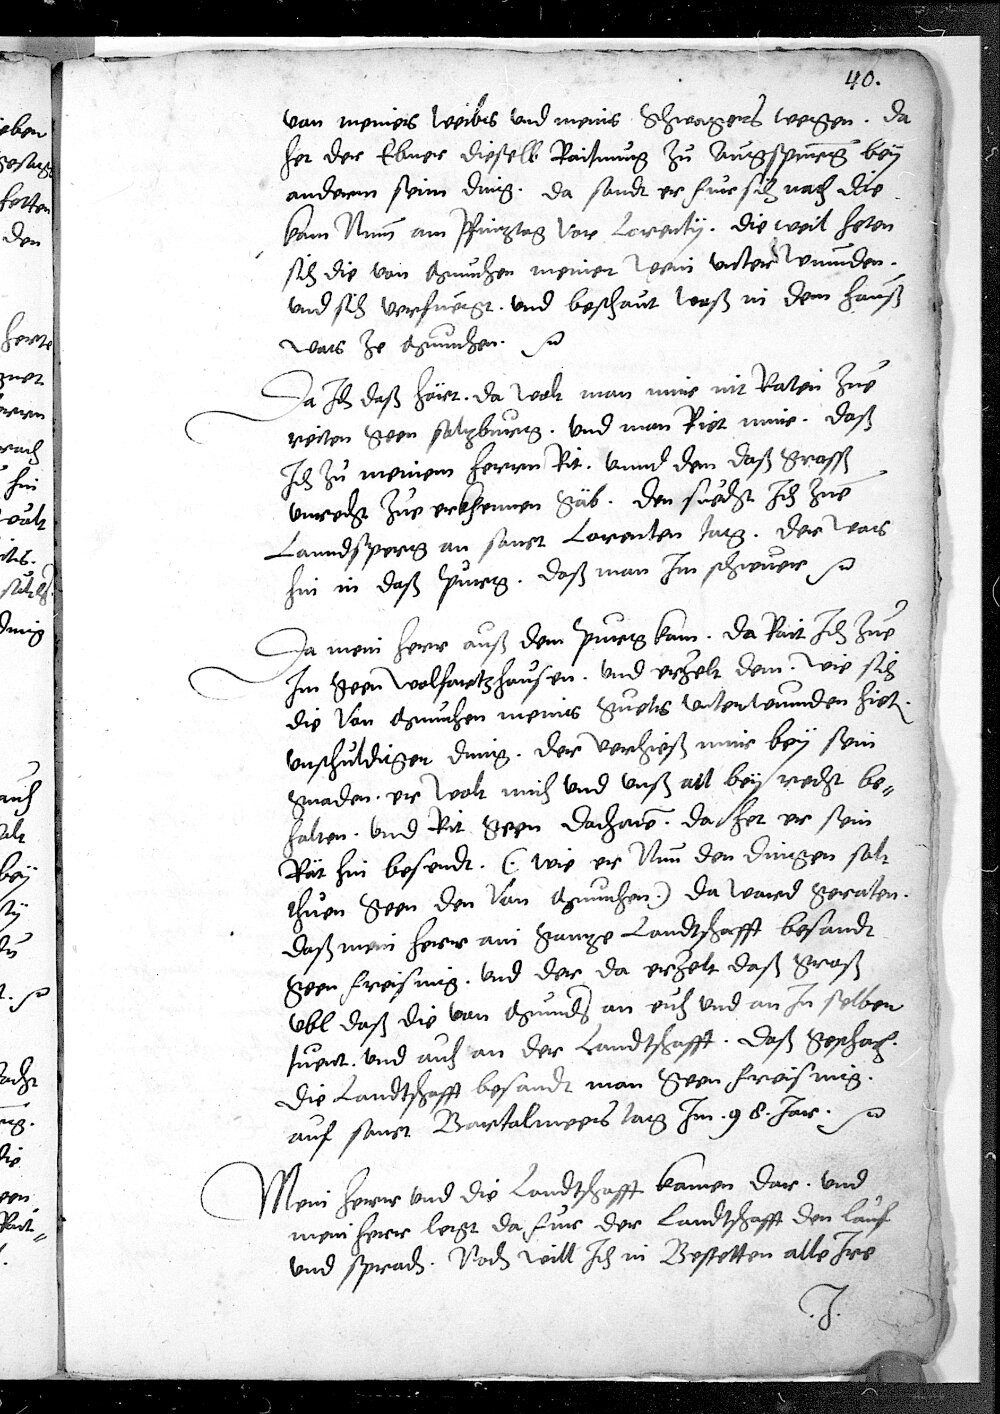 40.
von meins weibs und meins Schwagers wegen. da
het der Ebner dieselb Raitnung zu Augspurg bey
anderm seim ding. da sandt er fur sich nach die
kam Nun am Pfinztag vor Lorentÿ. die weil heten
sich die von Munchen meiner Wein unter Wunden.
und sich verfuegt. und beschaut waß in dem hauß
was ze Munchen.
Da Ich daß hört. da wolt man mir nit Raten Zue
reiten Geen salzburg. und man Riet mir. daß
Ich zu meinem herrn Rit. unnd dem daß Groß
unrecht Zue erkhennen Gäb. den suecht Ich Zue
Lanndsperg an sanct Lorentzen tag. der was
hin in daß Puirg. daß man Im schreuer
Da mein herr auß dem Puirg kam. da Rait Ich Zue
Im Geen Wolfartzhausen. und erzelt dem. wie sich
die von Munchen meins Guets unterwunden hiet.
unschuldiger ding. der verhieß mir beÿ sein
Gnaden. er wolt mich und unß all beÿ recht be„
halten. und Rit Geen Dachaw. da het er sein
Rät hin besendt. (: wie er Nun den dingen solt
thuen Geen den von Munchen:) da ward Geraten.
daß mein herr ain Gantze Landtschafft besandt
Geen Freising. und der da erzelt daß Groß
ubl daß die von Munchen an euch und an In selben
tuent. und auch an der Landtschafft. daß Geschach.
die Landtschafft besandt man Geen Freising.
auf sanct Bartalmees tag Im. 98. Jar.
Mein herr und die Landtschafft kamen dar. und
mein herr legt da fur der Landtschafft den lauf
und sprach. Noch will Ich in Bestetten alle Ire
.J.